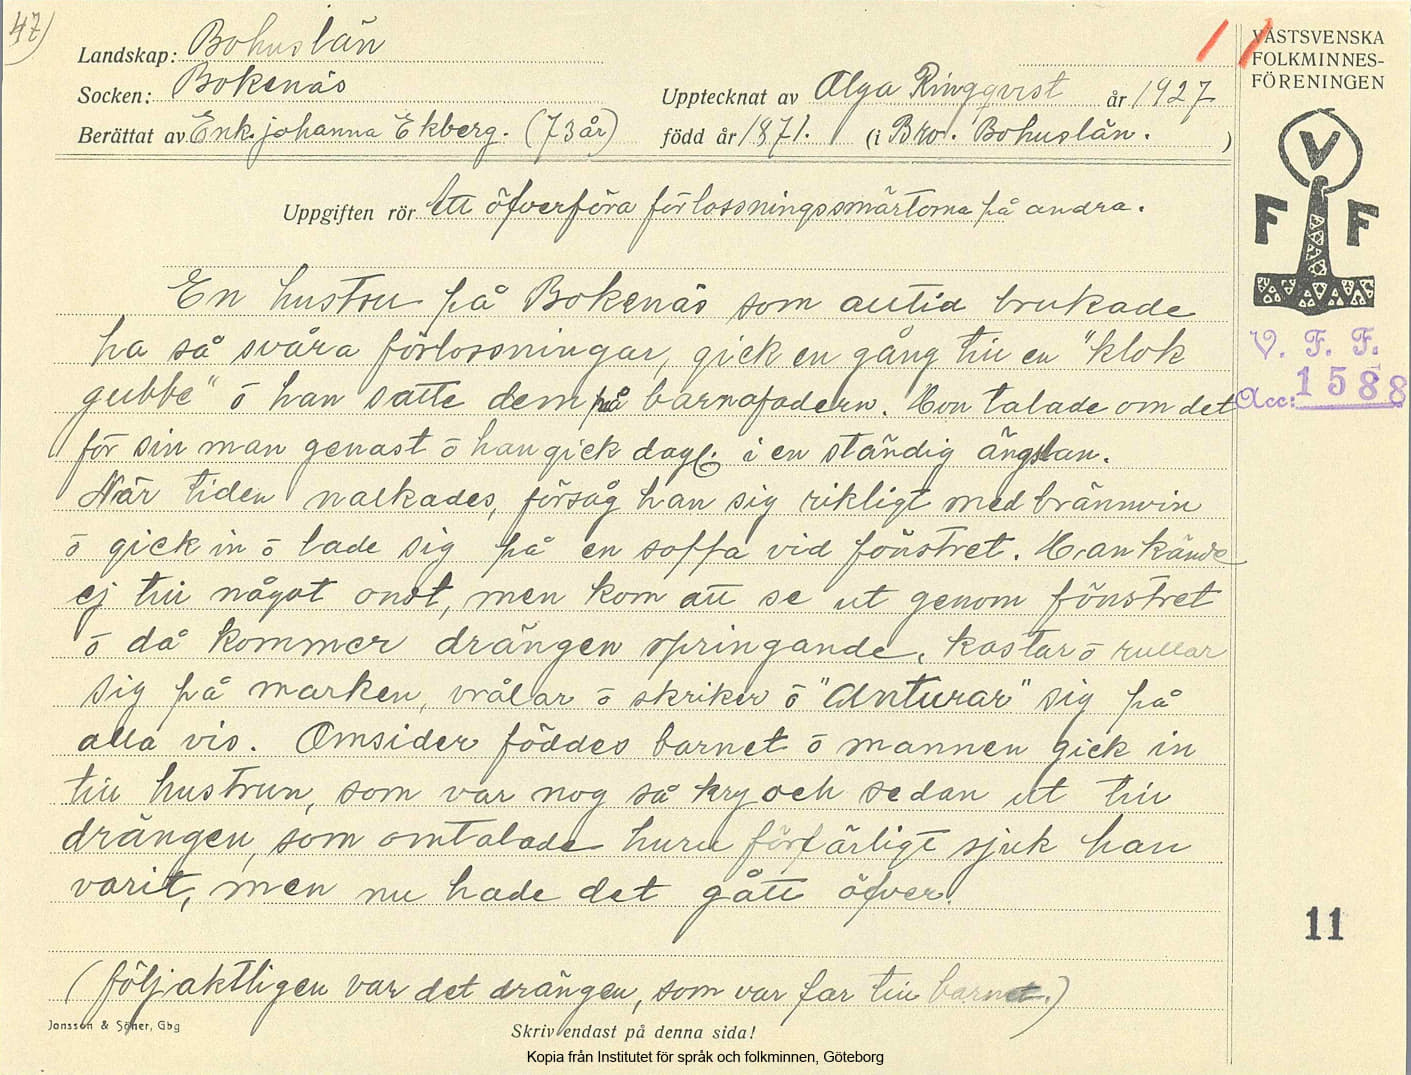 47)
Landskap: Bohuslän
Socken: Bokenäs
Berättat av Enk. johanna Ekberg. (73 år)
Upptecknat av Olga Ringqvist år 1927
född år 1871. (i Bro. Bohuslän. )
Uppgiften rör Att öfverföra förlossningssmärtorna på andra.
VÄSTSVENSKA
FOLKMINNES-
FÖRENINGEN
V
F F
V. F. F.
Acc: 1588
En hustru på Bokenäs som alltid brukade
ha så svåra förlossningar, gick en gång till en "klok
gubbe" ō han satte dem på barnafadern. Hon talade om det
för sin man genast ō han gick dagl. i en ständig ängslan.
När tiden nalkades, försåg han sig rikligt med brännvin
ō gick in ō lade sig på en soffa vid fönstret. Han kände
ej till något ondt, men kom att se ut genom fönstret
ō då kommer drängen springande, kastar ō rullar
sig på marken, vrålar ō skriker ō "anturar" sig på
alla vis. Omsider föddes barnet ō mannen gick in
till hustrun, som var nog så kry och sedan ut till
drängen, som omtalade huru förfärligt sjuk han
varit, men nu hade det gått öfver.
11
(följaktligen var det drängen, som var far till barnet.)
Jansson & Söner, Gbg
Skriv endast på denna sida!
Kopia från Institutet för språk och folkminnen, Göteborg